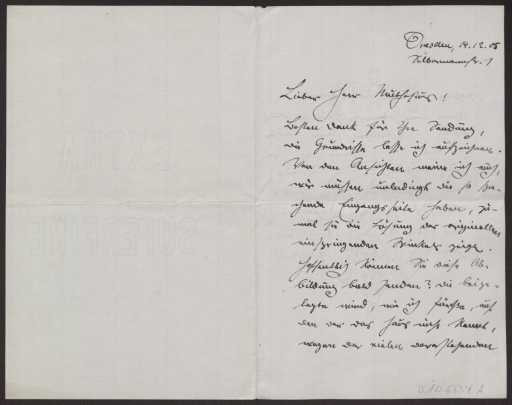 Dresden, 14.12.05
Silbermannstr. 1
Lieber Herr Muthesius!
Besten Dank für Ihre Sendung,
die Grundrisse lasse ich aufzeichnen.
Von den Ansichten meine ich auch,
wir müssen unbedingt die so
Eingangsseite haben, zu-
mal sie die Lösung des originellen
einspringenden Winkels zeigt.
Hoffentlich können Sie diese Ab-
bildung bald senden; die beige-
legte wird, wie ich fürchte, auf
den der das Haus nicht kennt,
wegen der vielen